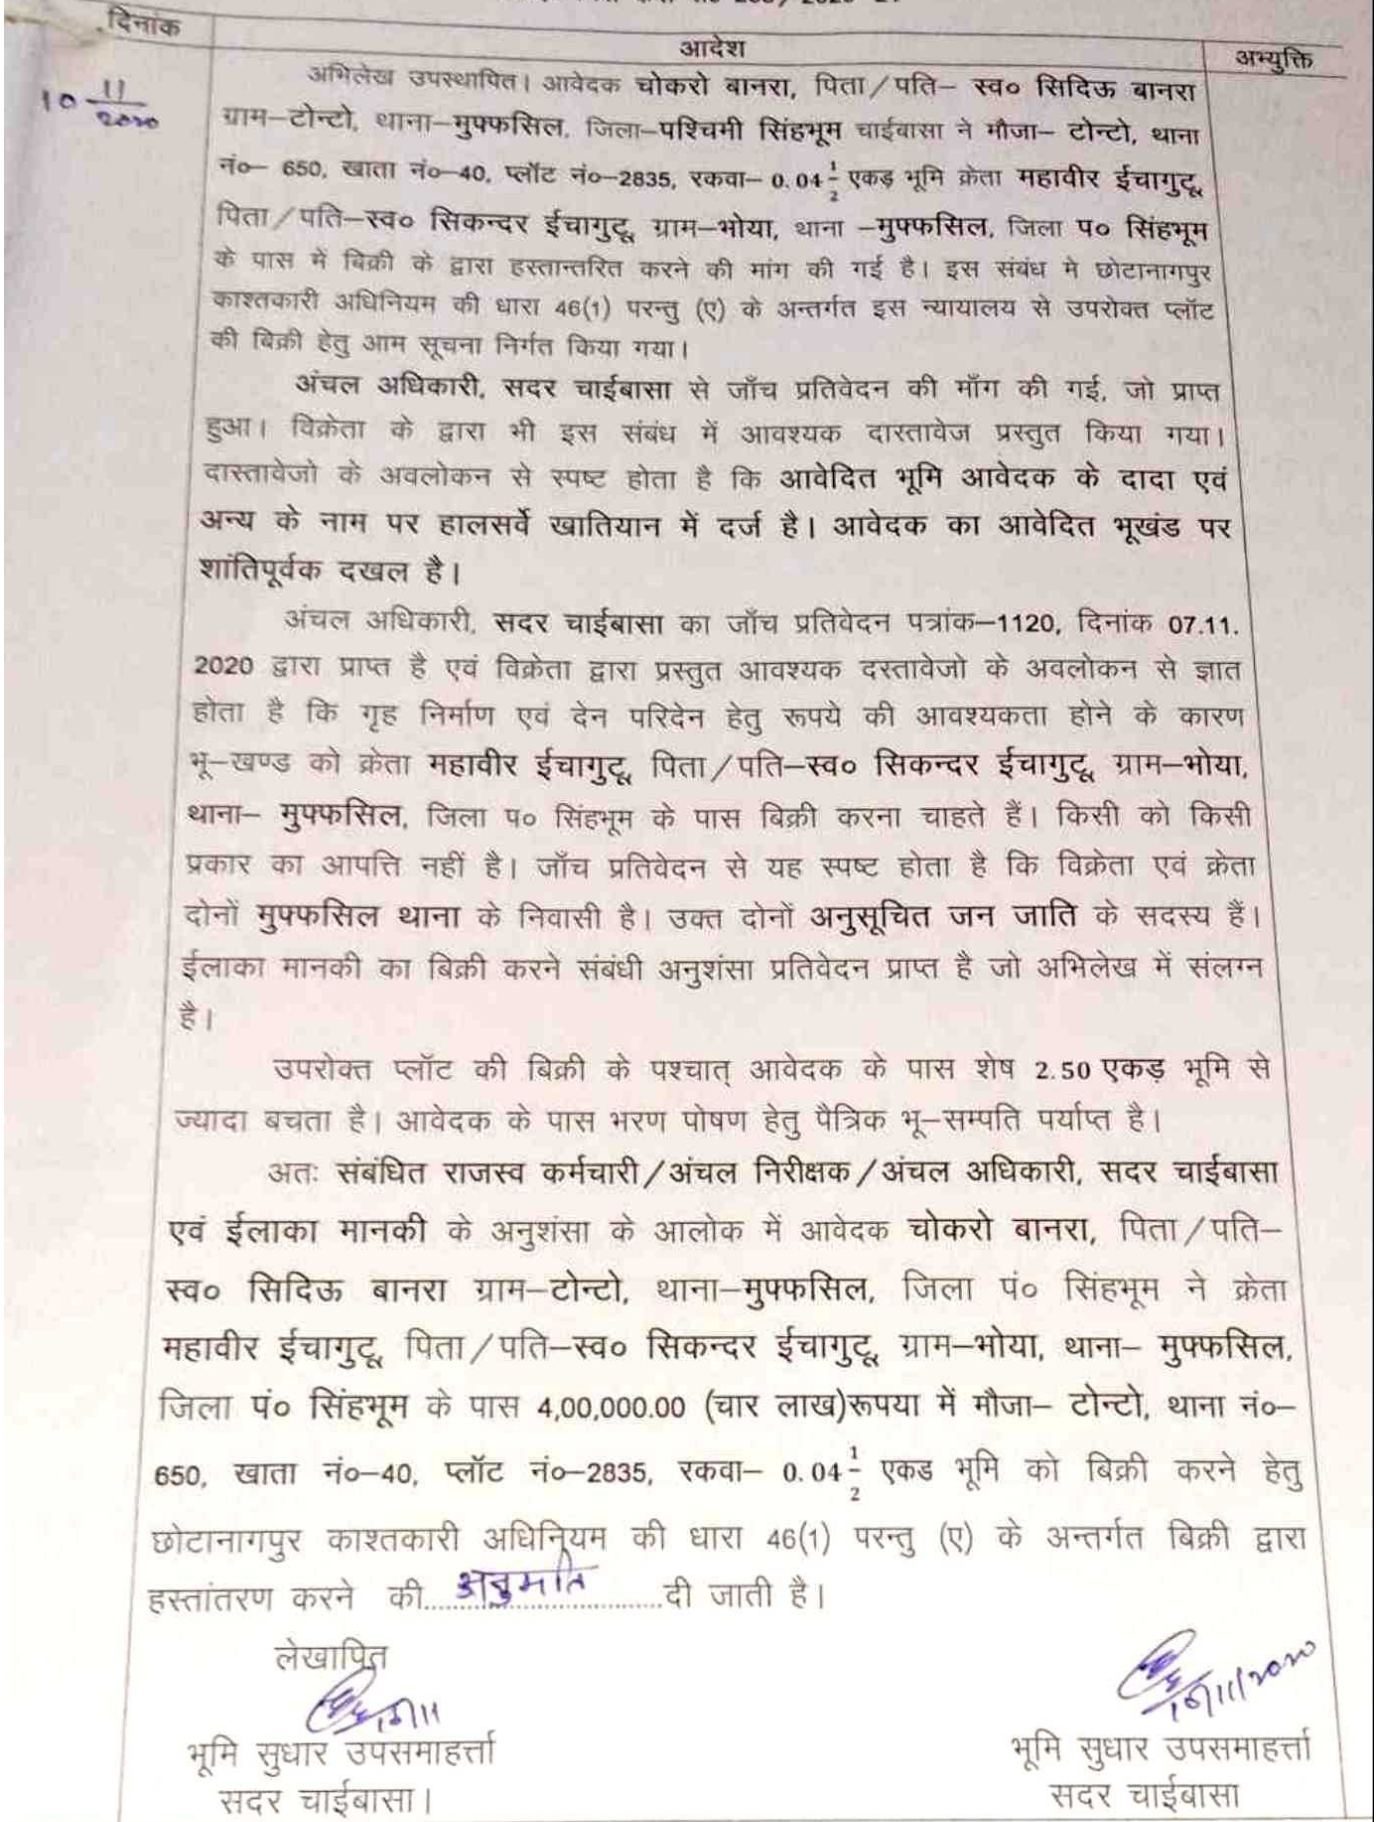 दिनांक
आदेश
अभ्युक्ति
10 11/2020
अभिलेख उपस्थापित। आवेदक चोकरो बानरा, पिता/पति– स्व० सिदिऊ बानरा
ग्राम–टोन्टो, थाना–मुफ्फसिल, जिला–पश्चिमी सिंहभूम चाईबासा ने मौजा– टोन्टो, थाना
नं०– 650, खाता नं०–40, प्लॉट नं०–2835, रकवा– 0.04 1/2 एकड़ भूमि क्रेता महावीर ईचागुटू,
पिता/पति–स्व० सिकन्दर ईचागुटू, ग्राम–भोया, थाना –मुफ्फसिल, जिला प० सिंहभूम
के पास में बिक्री के द्वारा हस्तान्तरित करने की मांग की गई है। इस संबंध मे छोटानागपुर
काश्तकारी अधिनियम की धारा 46(1) परन्तु (ए) के अन्तर्गत इस न्यायालय से उपरोक्त प्लॉट
की बिक्री हेतु आम सूचना निर्गत किया गया।
अंचल अधिकारी, सदर चाईबासा से जाँच प्रतिवेदन की माँग की गई, जो प्राप्त
हुआ। विक्रेता के द्वारा भी इस संबंध में आवश्यक दास्तावेज प्रस्तुत किया गया।
दास्तावेजो के अवलोकन से स्पष्ट होता है कि आवेदित भूमि आवेदक के दादा एवं
अन्य के नाम पर हालसर्वे खातियान में दर्ज है। आवेदक का आवेदित भूखंड पर
शांतिपूर्वक दखल है।
अंचल अधिकारी, सदर चाईबासा का जाँच प्रतिवेदन पत्रांक–1120, दिनांक 07.11.
2020 द्वारा प्राप्त है एवं विक्रेता द्वारा प्रस्तुत आवश्यक दस्तावेजो के अवलोकन से ज्ञात
होता है कि गृह निर्माण एवं देन परिदेन हेतु रूपये की आवश्यकता होने के कारण
भू–खण्ड को क्रेता महावीर ईचागुटू, पिता/पति–स्व० सिकन्दर ईचागुटू, ग्राम–भोया,
थाना– मुफ्फसिल, जिला प० सिंहभूम के पास बिक्री करना चाहते हैं। किसी को किसी
प्रकार का आपत्ति नहीं है। जाँच प्रतिवेदन से यह स्पष्ट होता है कि विक्रेता एवं क्रेता
दोनों मुफ्फसिल थाना के निवासी है। उक्त दोनों अनुसूचित जन जाति के सदस्य हैं।
ईलाका मानकी का बिक्री करने संबंधी अनुशंसा प्रतिवेदन प्राप्त है जो अभिलेख में संलग्न
है।
उपरोक्त प्लॉट की बिक्री के पश्चात् आवेदक के पास शेष 2.50 एकड़ भूमि से
ज्यादा बचता है। आवेदक के पास भरण पोषण हेतु पैत्रिक भू–सम्पति पर्याप्त है।
अतः संबंधित राजस्व कर्मचारी/अंचल निरीक्षक/अंचल अधिकारी, सदर चाईबासा
एवं ईलाका मानकी के अनुशंसा के आलोक में आवेदक चोकरो बानरा, पिता/पति–
स्व० सिदिऊ बानरा ग्राम–टोन्टो, थाना–मुफ्फसिल, जिला पं० सिंहभूम ने क्रेता
महावीर ईचागुटू, पिता/पति–स्व० सिकन्दर ईचागुटू, ग्राम–भोया, थाना– मुफ्फसिल,
जिला पं० सिंहभूम के पास 4,00,000.00 (चार लाख)रूपया में मौजा– टोन्टो, थाना नं०–
650, खाता नं०–40, प्लॉट नं०–2835, रकवा– 0.04 1/2 एकड भूमि को बिक्री करने हेतु
छोटानागपुर काश्तकारी अधिनियम की धारा 46(1) परन्तु (ए) के अन्तर्गत बिक्री द्वारा
हस्तांतरण करने की....अनुमति....दी जाती है।
लेखापित
भूमि सुधार उपसमाहर्त्ता
सदर चाईबासा।
भूमि सुधार उपसमाहर्त्ता
सदर चाईबासा